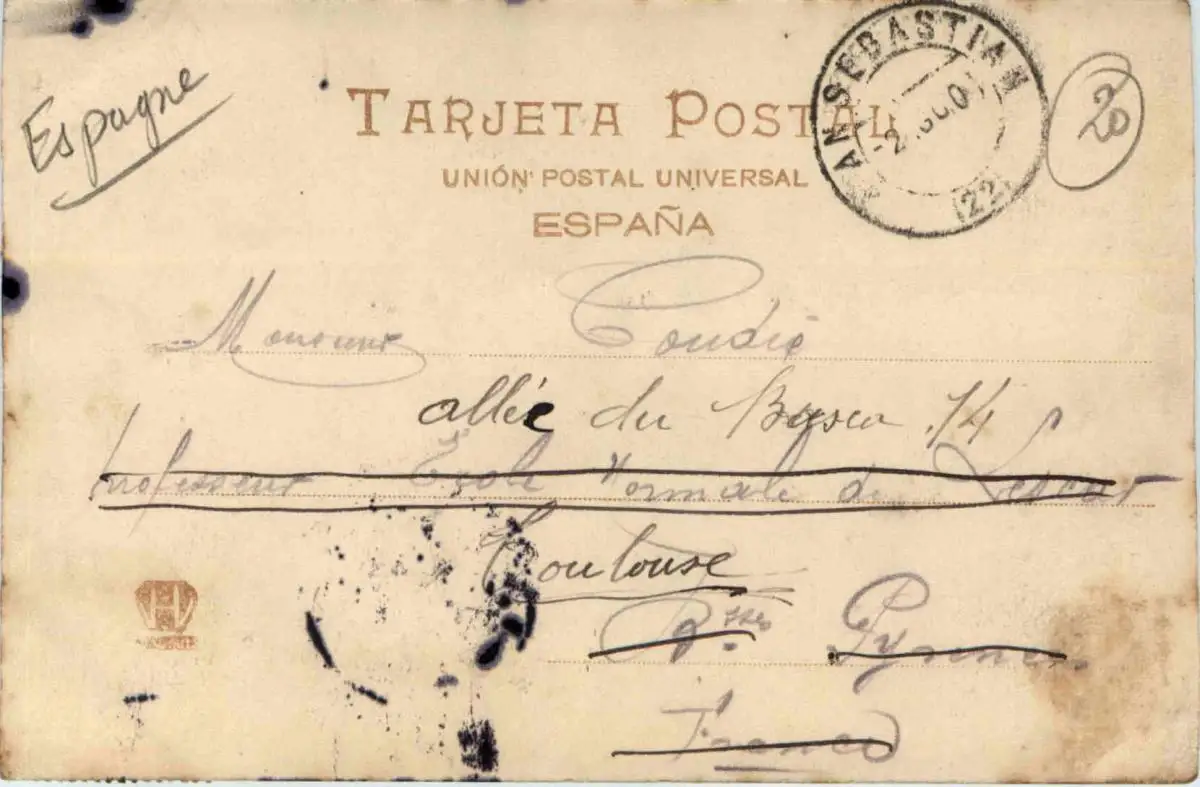 Espagne
TARJETA POSTAL
UNIÓN POSTAL UNIVERSAL
ESPAÑA
SAN SEBASTIAN
(22)
20
Monsieur
allée du Busca 14
Professeur Ecole Normale de Lescar
Toulouse
Bsses Pyrénées
France